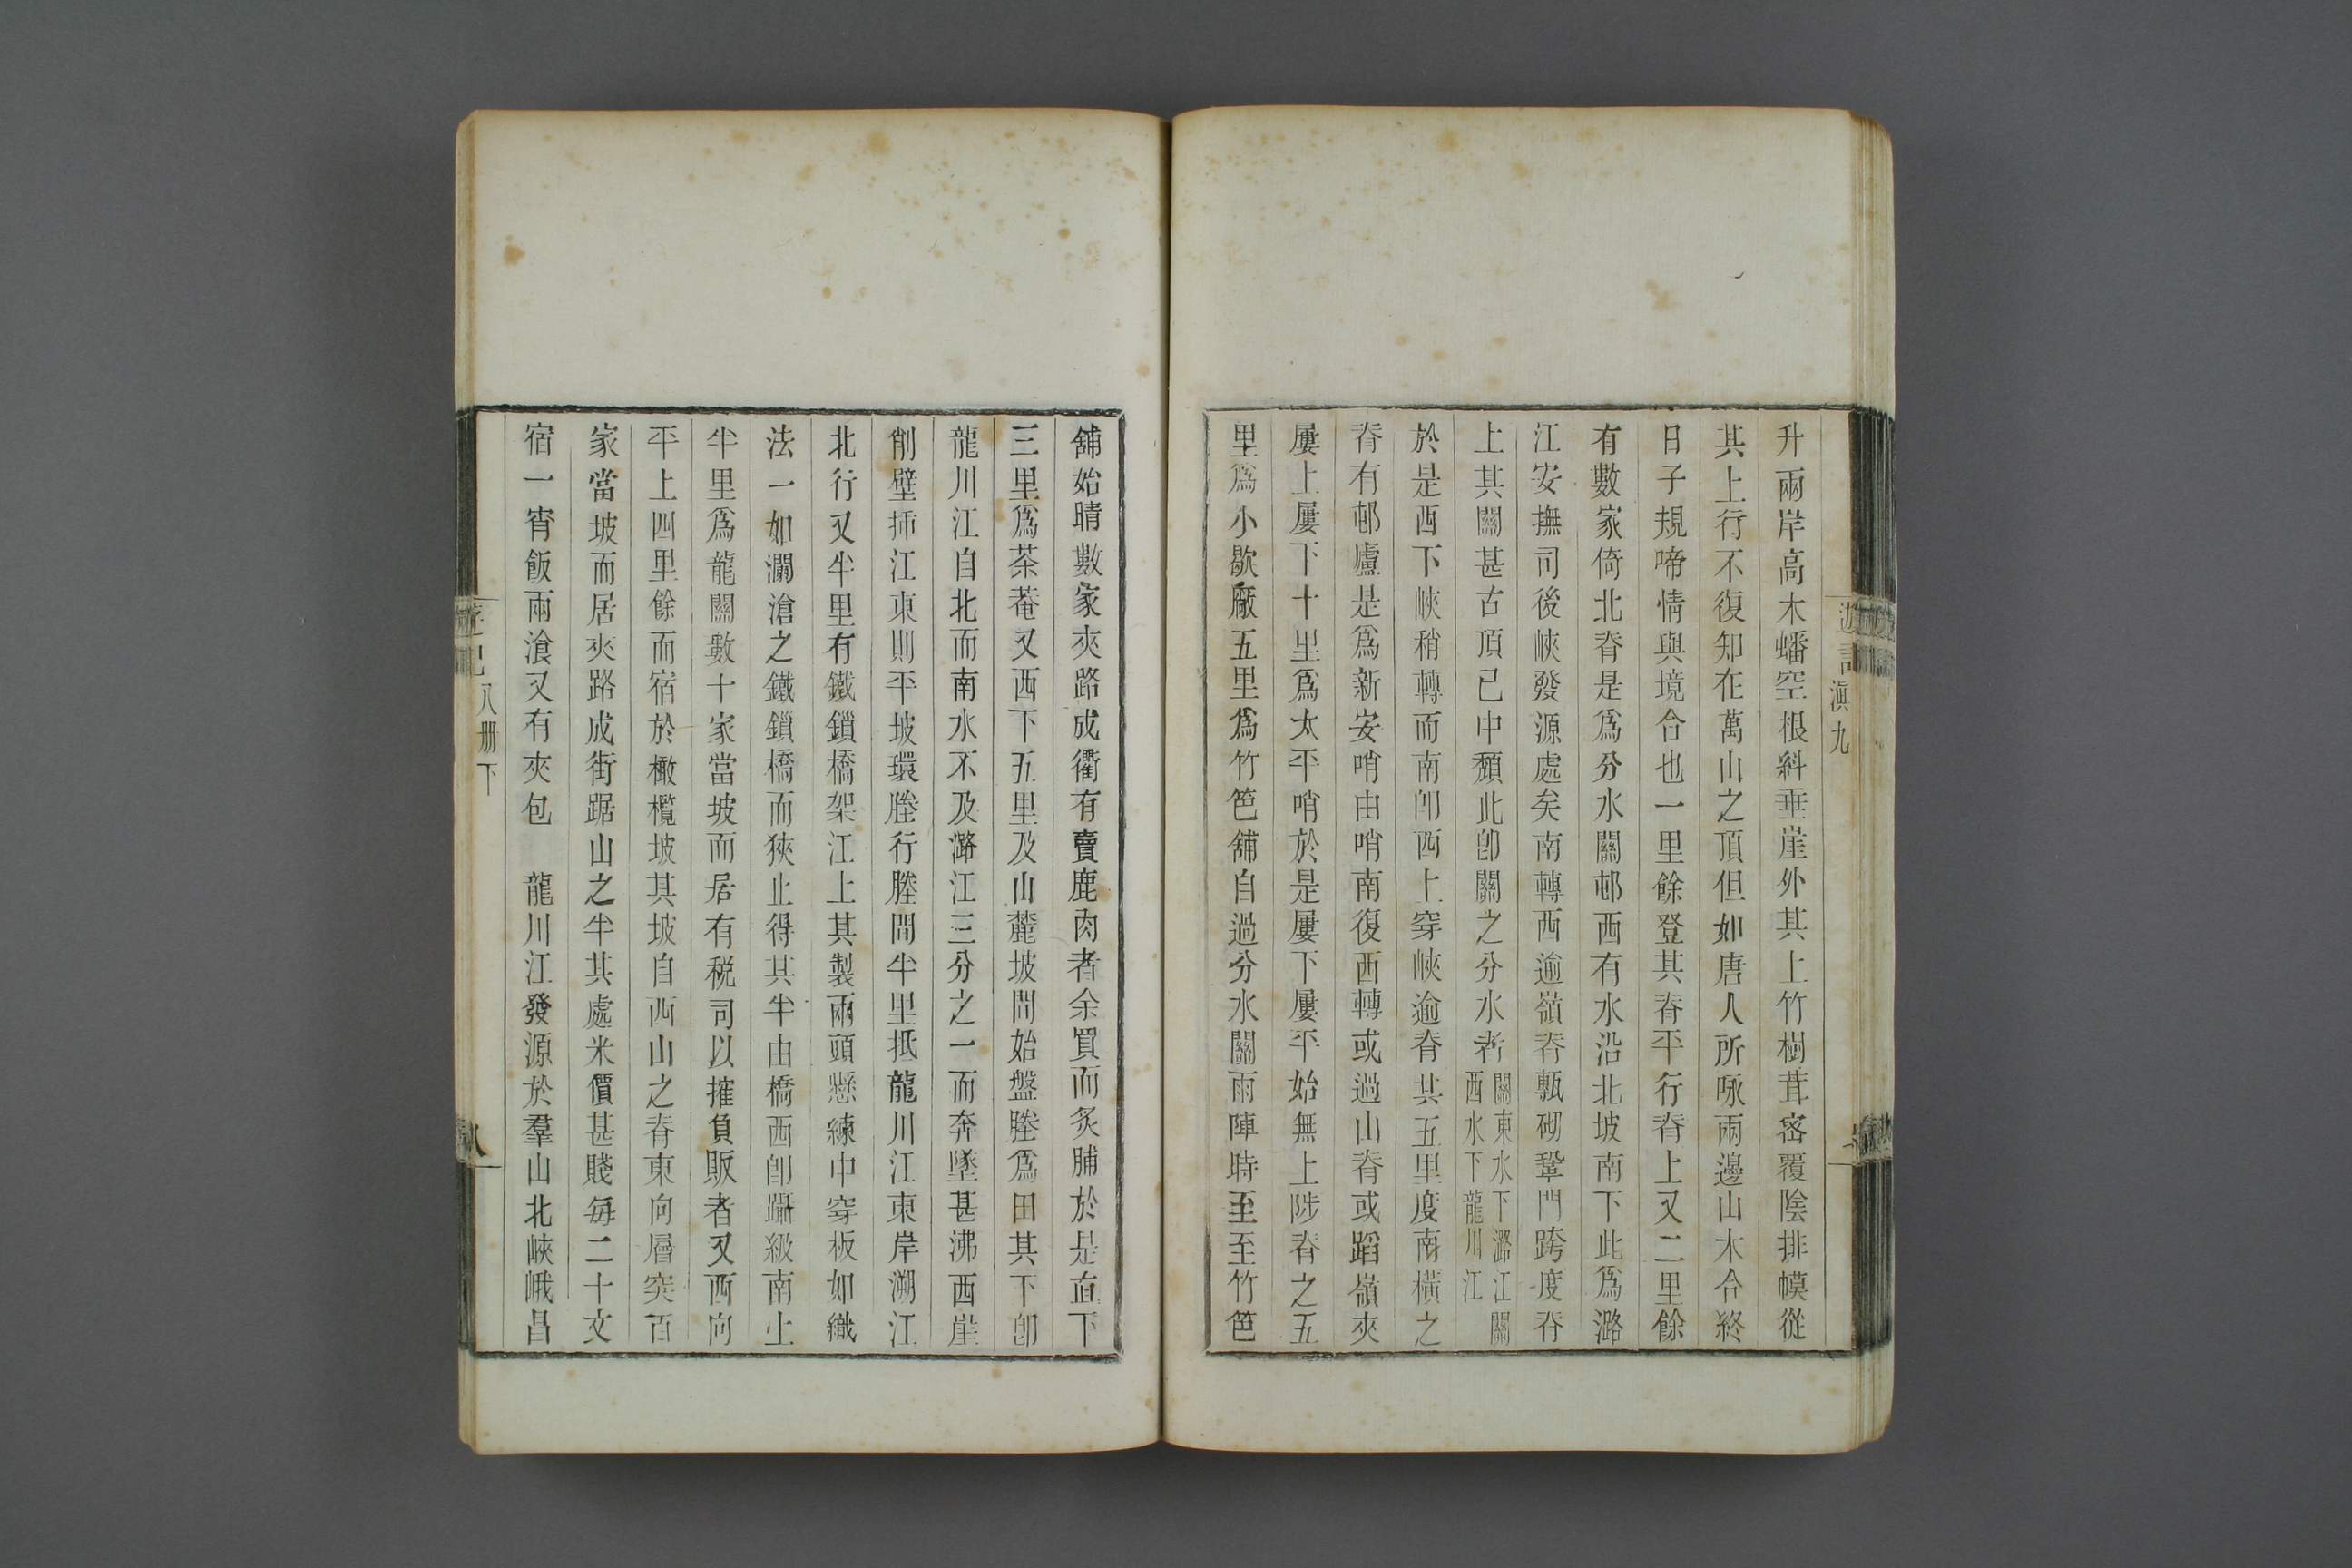 遊記 滇九
升兩岸高木蟠空根糾垂崖外其上竹樹茸密覆陰排幙從
其上行不復知在萬山之頂但如唐人所咏兩邊山木合終
日子規啼情與境合也一里餘登其脊平行脊上又二里餘
有數家倚北脊是爲分水關邨西有水沿北坡南下此爲潞
江安撫司後峽發源處矣南轉西逾嶺脊甎砌鞏門跨度脊
上其關甚古頂已中頹此卽關之分水者關東水下潞江關西水下龍川江
於是西下峽稍轉而南卽西上穿峽逾脊共五里度南橫之
脊有邨廬是爲新安哨由哨南復西轉或過山脊或蹈嶺夾
屢上屢下十里爲太平哨於是屢下屢平始無上陟脊之五
里爲小歇廠五里爲竹笆舖自過分水關雨陣時至至竹笆
舖始晴數家夾路成衢有賣鹿肉者余買而炙脯於是直下
三里爲茶菴又西下五里及山麓坡間始盤塍爲田其下卽
龍川江自北而南水不及潞江三分之一而奔墜甚沸西崖
削壁揷江東則平坡環塍行塍間半里抵龍川江東岸溯江
北行又半里有鐵鎖橋架江上其製兩頭懸練中穿板如織
法一如瀾滄之鐵鎖橋而狹止得其半由橋西卽躡級南上
半里爲龍關數十家當坡而居有税司以搉負販者又西向
平上四里餘而宿於橄欖坡其坡自西山之脊東向層突百
家當坡而居夾路成街踞山之半其處米價甚賤每二十文
宿一宵飯兩湌又有夾包　龍川江發源於羣山北峽峨昌
遊記 八册下 八